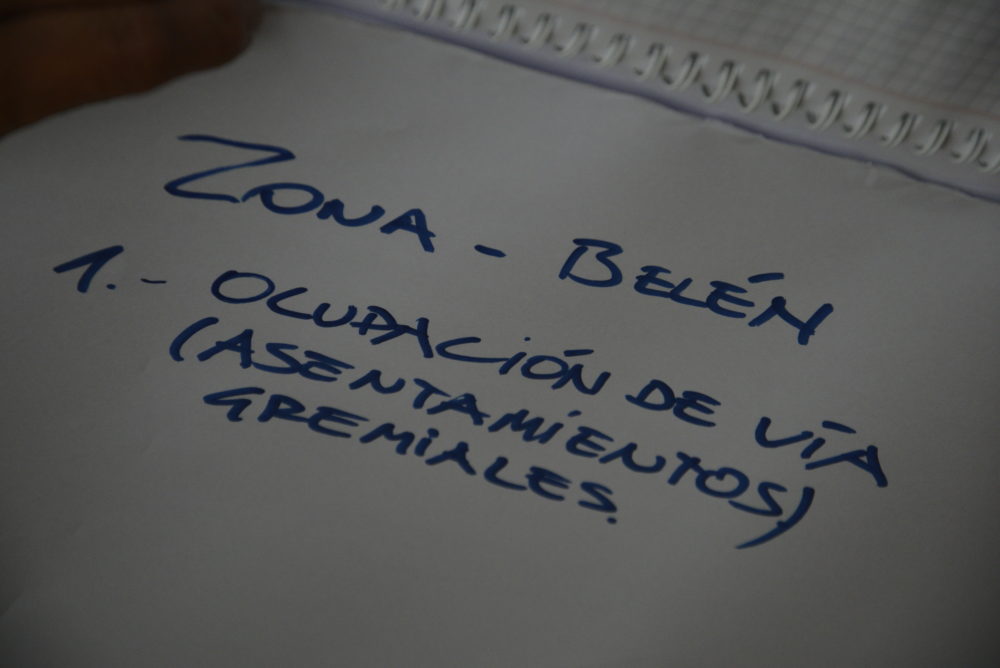 ZONA - BELÉN
1.- OCUPACIÓN DE VÍA
(ASENTAMIENTOS)
GREMIALES.